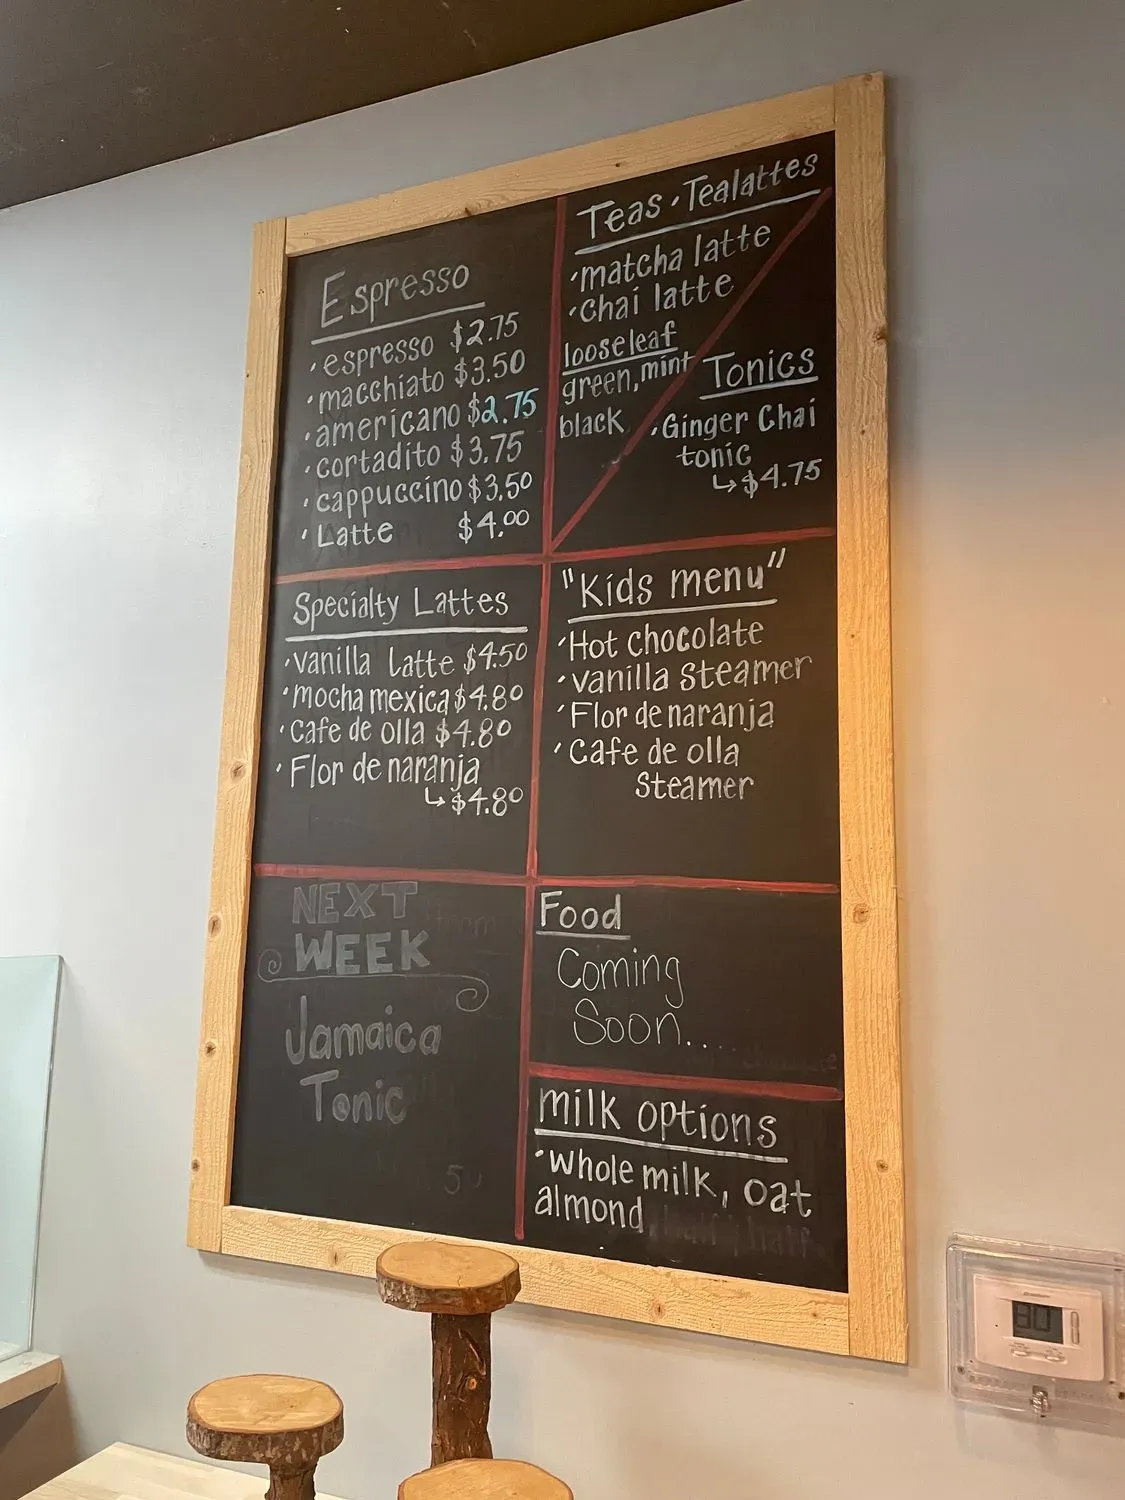 Espresso
·espresso $2.75
·macchiato $3.50
·americano $2.75
·cortadito $3.75
·cappuccino $3.50
·Latte $4.00
Teas·Tealattes
·matcha latte
·chai latte
looseleaf
green, mint
black
Tonics
·Ginger Chai
tonic
↳$4.75
Specialty Lattes
·vanilla Latte $4.50
·mocha mexica $4.80
·Cafe de olla $4.80
·Flor de naranja
↳$4.80
"Kids menu"
·Hot chocolate
·vanilla Steamer
·Flor de naranja
·Cafe de olla
Steamer
NEXT
WEEK
Jamaica
Tonic
Food
Coming
Soon....
milk options
·whole milk, oat
almond
80